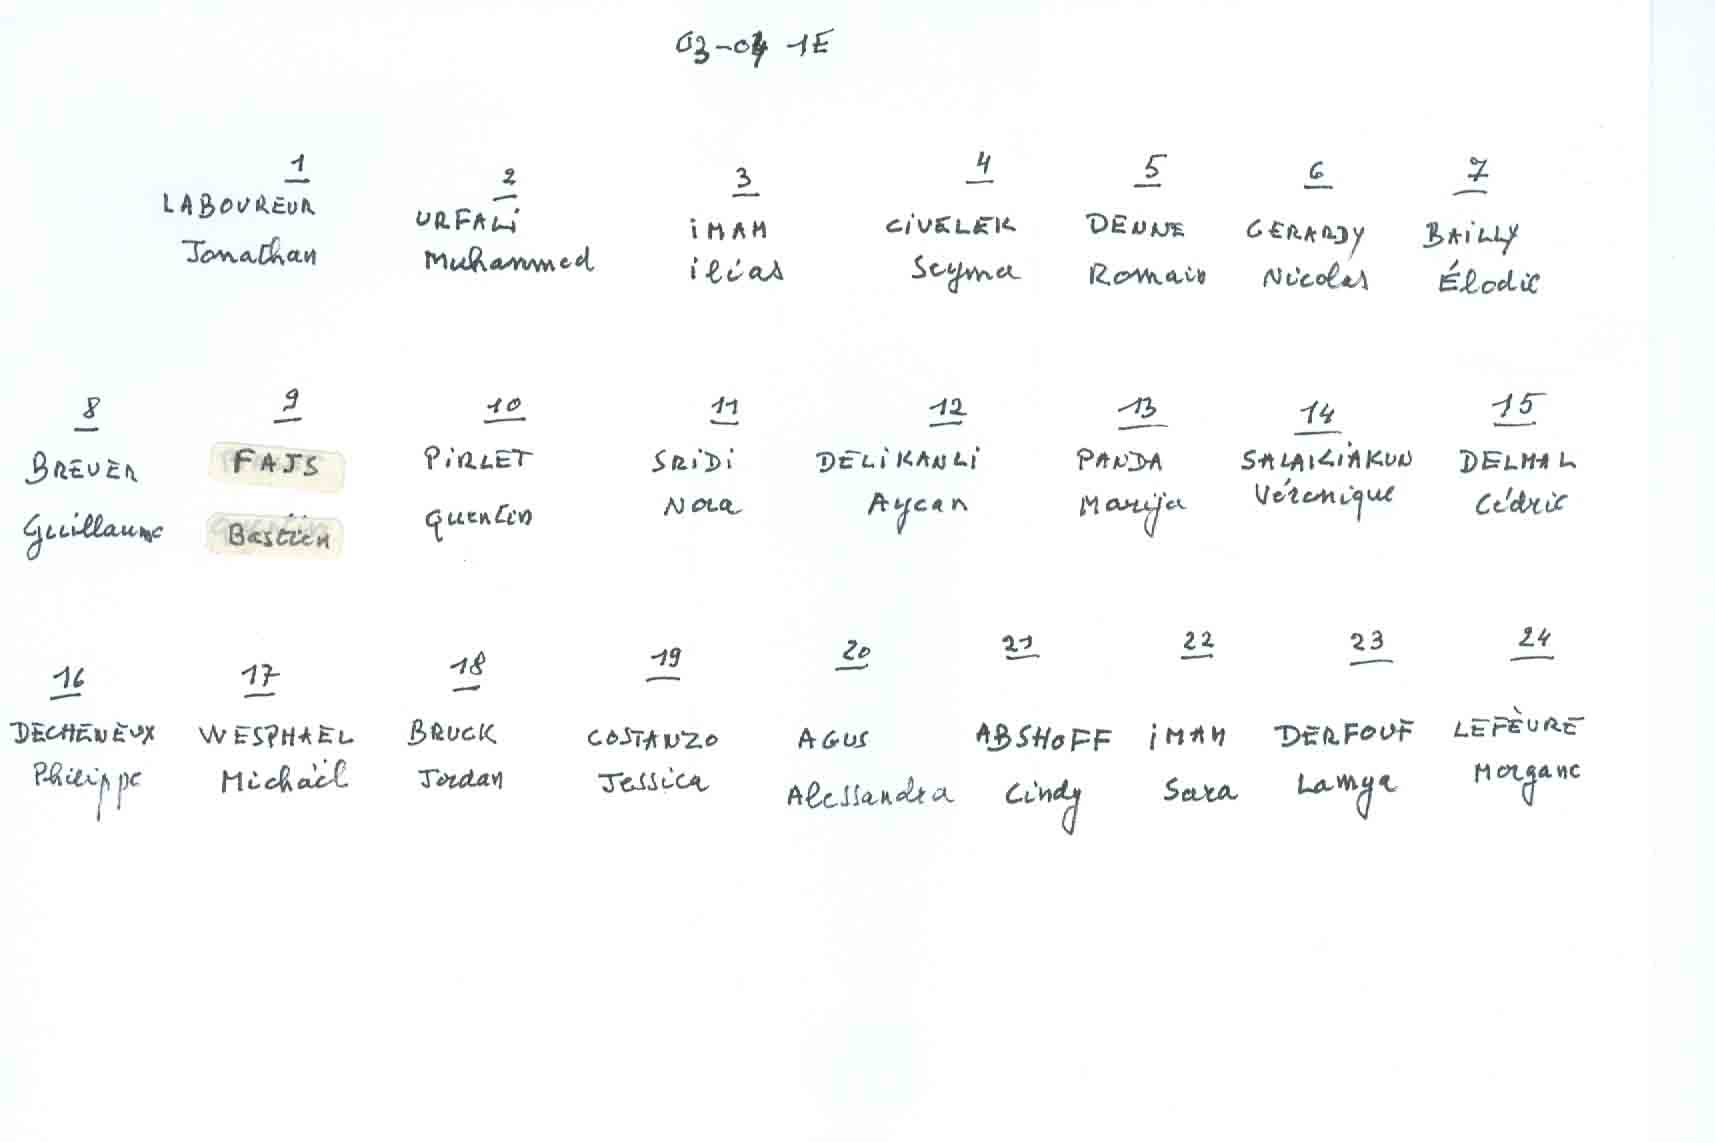 03-04 1E
1 2 3 4 5 6 7
LABOUREUR URFALi iMAM CiVELEK DENNE GERARDY BAiLLY
Jonathan Muhammed ilias Seyma Romain Nicolas Élodie
8 9 10 11 12 13 14 15
BREUER FAJS PiRLET SRiDi DELiKANLi PANDA DELHAL
Guillaume Bastien Quentin Nora Aycan Marija Véronique Cédric
16 17 18 19 20 21 22 23 24
DECHENEUX WESPHAEL BRUCK COSTANZO AGUS ABSHOFF iMAM DERFOUF LEFÈVRE
Philippe Michaël Jordan Jessica Alessandra Cindy Sara Lamya Morgane